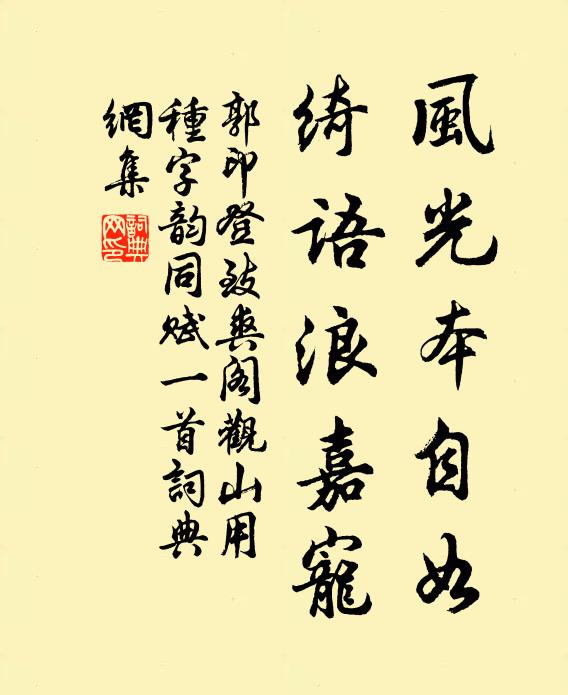 風光本自如
綺語浪嘉寵
郭印登致爽阁觀山用
種字韵同赋一首詞典
網集
詞典
网印